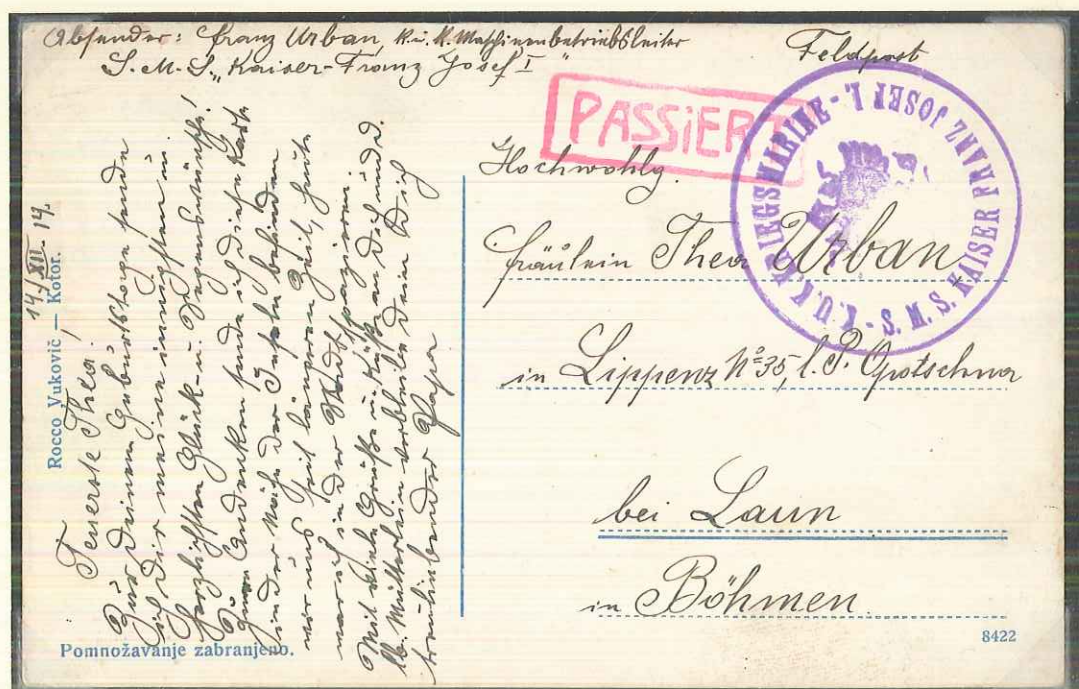 Absender: Franz Urban, k.u.k. Maschinenbetriebsleiter
S.M.S. „Kaiser-Franz Josef I"
Feldpost
PASSIERT
K.U.K. KRIEGSMARINE - S.M.S. KAISER FRANZ JOSEF I. -
Hochwohlg.
Fräulein Thea Urban
in Lippenz No 35, l. P. Opotschna
bei Laun
in Böhmen.
14./XII. 14.
Teuerste Thea!
Zur Deinem Geburtstage sende
ich Dir meine innigsten u
herzlichsten Glück- u. Segenswünsche!
Zum Andenken sende ich diese Karte
in der Nähe der Inseln befinden
wir uns seit längerer Zeit, heute
war ich in der Stadt spazieren.
Mit viele Grüße u. Küße an Dich und d.
lb. Mutterlein verbleibe Dein Dich
treuliebender Papa
Rocco Vukovič — Kotor.
Pomnožavanje zabranjeno.
8422